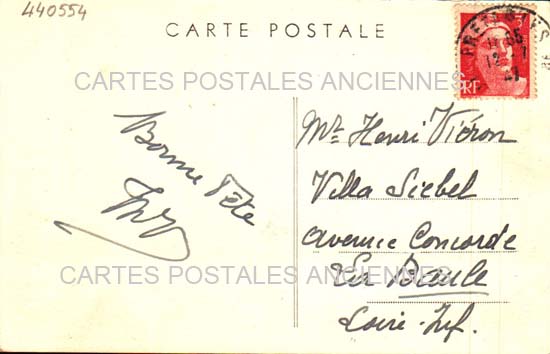 440554
CARTE POSTALE
CARTES POSTALES ANCIENNES
Bonne Fête
Mr Henri Viéron
Villa Siebel
Avenue Concorde
La Baule
Loire-Inf.
CARTES POSTALES ANCIENNES
12 - 7
RF